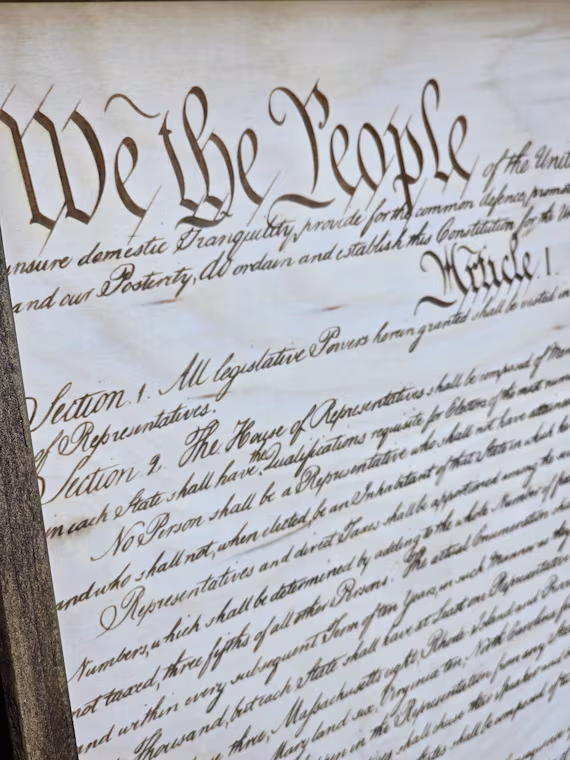 We the People of the Unit
insure domestic Tranquility, provide for the common defence, promo
and our Posterity, do ordain and establish this Constitution for the Un
Article. I.
Section. 1. All legislative Powers herein granted shall be vested in
of Representatives.
Section. 2. The House of Representatives shall be composed of Mem
in each State shall have the Qualifications requisite for Electors of the most num
No Person shall be a Representative who shall not have attained
and who shall not, when elected, be an Inhabitant of that State in which he
Representatives and direct Taxes shall be apportioned among the
Numbers, which shall be determined by adding to the whole Number of free
not taxed, three fifths of all other Persons. The actual Enumeration sha
and within every subsequent Term of ten Years, in such Manner as they
Thousand, but each State shall have at Least one Representative
three, Massachusetts eight, Rhode Island and
Maryland six, Virginia ten, North Carolina
happen in the Representation from any State
shall chuse their Speaker and
shall be composed of